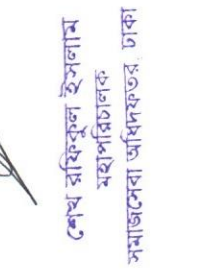 শেখ রফিকুল ইসলাম
মহাপরিচালক
সমাজসেবা অধিদফতর, ঢাকা